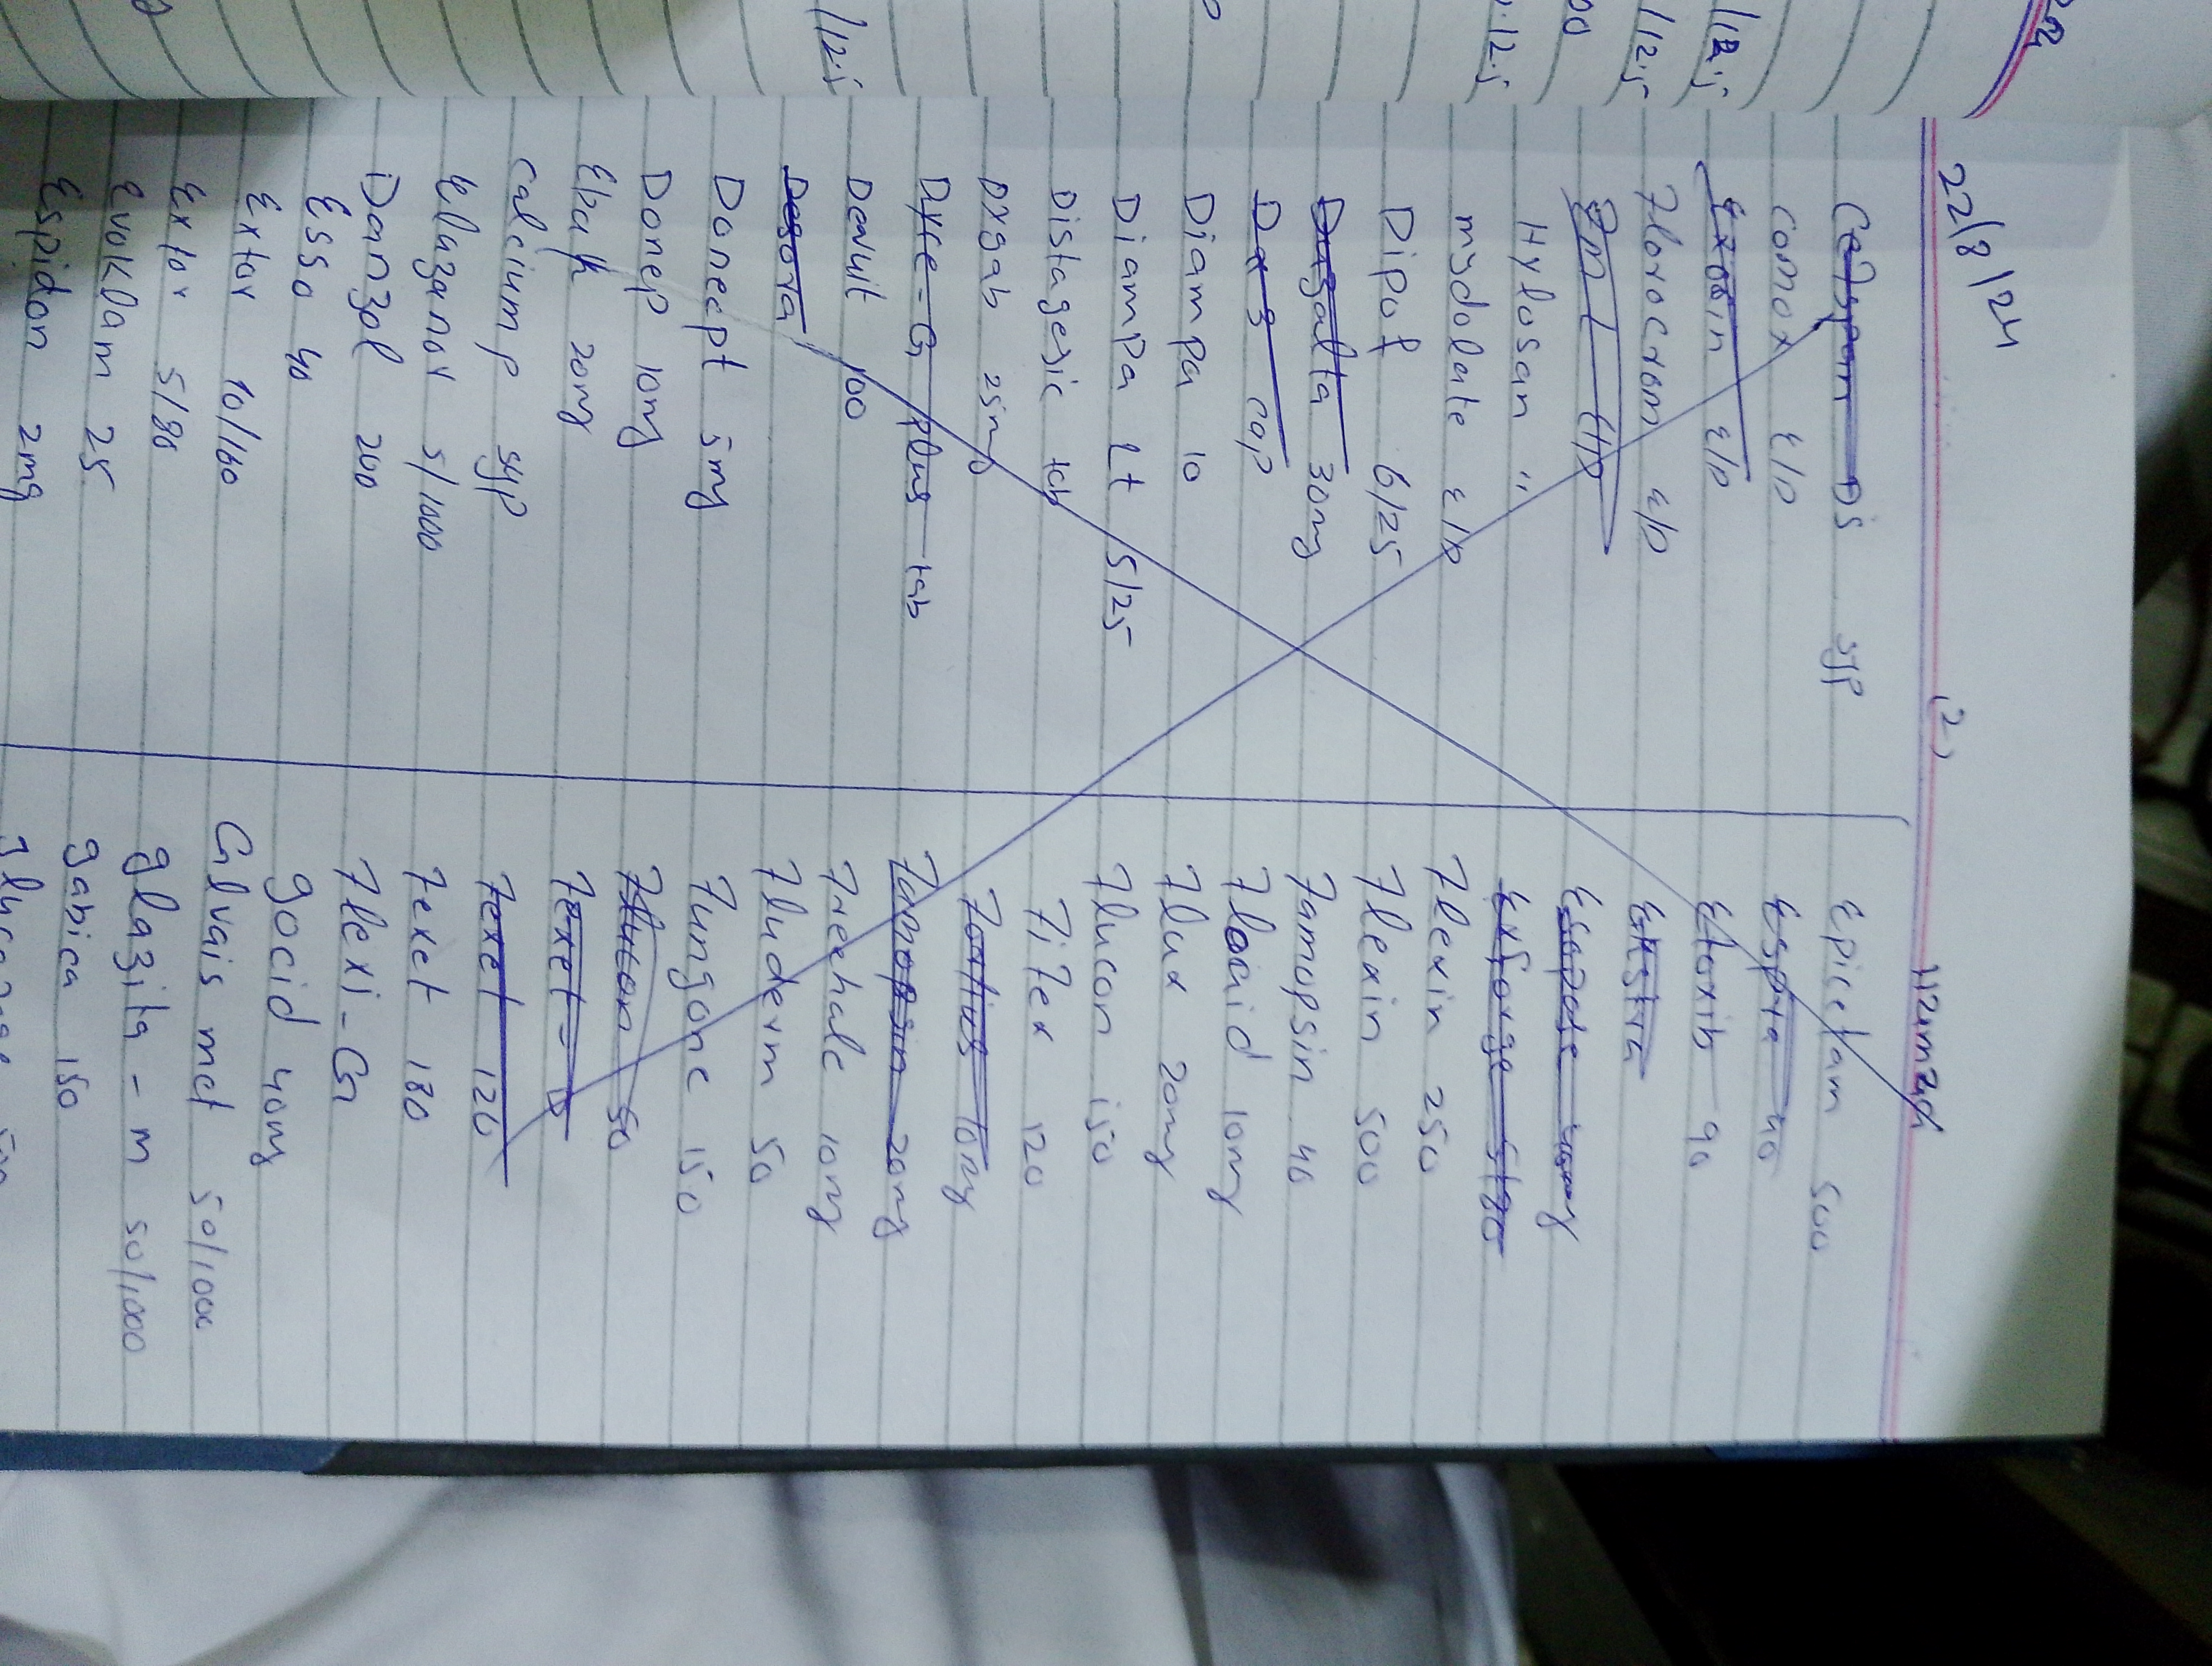 22/8/24
(2)
Hamza
Cefspan DS syp
Comox E/D
Exocin E/D
Florocrom E/D
Hylosan "
mydolate E/D
Dipof 6/25
Dusalta 30mg
Dx3 cap
Diampa 10
Diampa Lt 5/25
Distagesic tab
Dxgab 25mg
Dyte-G plus tab
Devuit 100
Desora
Donecpt 5mg
Donep 10mg
20mg
Calcium P syp
Elaganor 5/1000
Danzol 200
Esso 40
Extor 10/160
Extor 5/80
EvokDam 25
Espidon 2mg
Epicetam 500
Espra 40
Etoxib 90
Esopase 40mg
Exforge 5/80
Flexin 250
Flexin 500
Famopsin 40
Floaid 10mg
Flux 20mg
Flucon 150
Fifex 120
Fortius 10mg
Famopsin 20mg
Freehale 10mg
Fluderm 50
Fungone 150
50
Fexet-D
Fexet 120
Fexet 180
Flexi-G
gocid 40mg
Galvais met 50/1000
glazita-m 50/1000
gabica 150
/12.5
/12.5
/12.5
.12.5